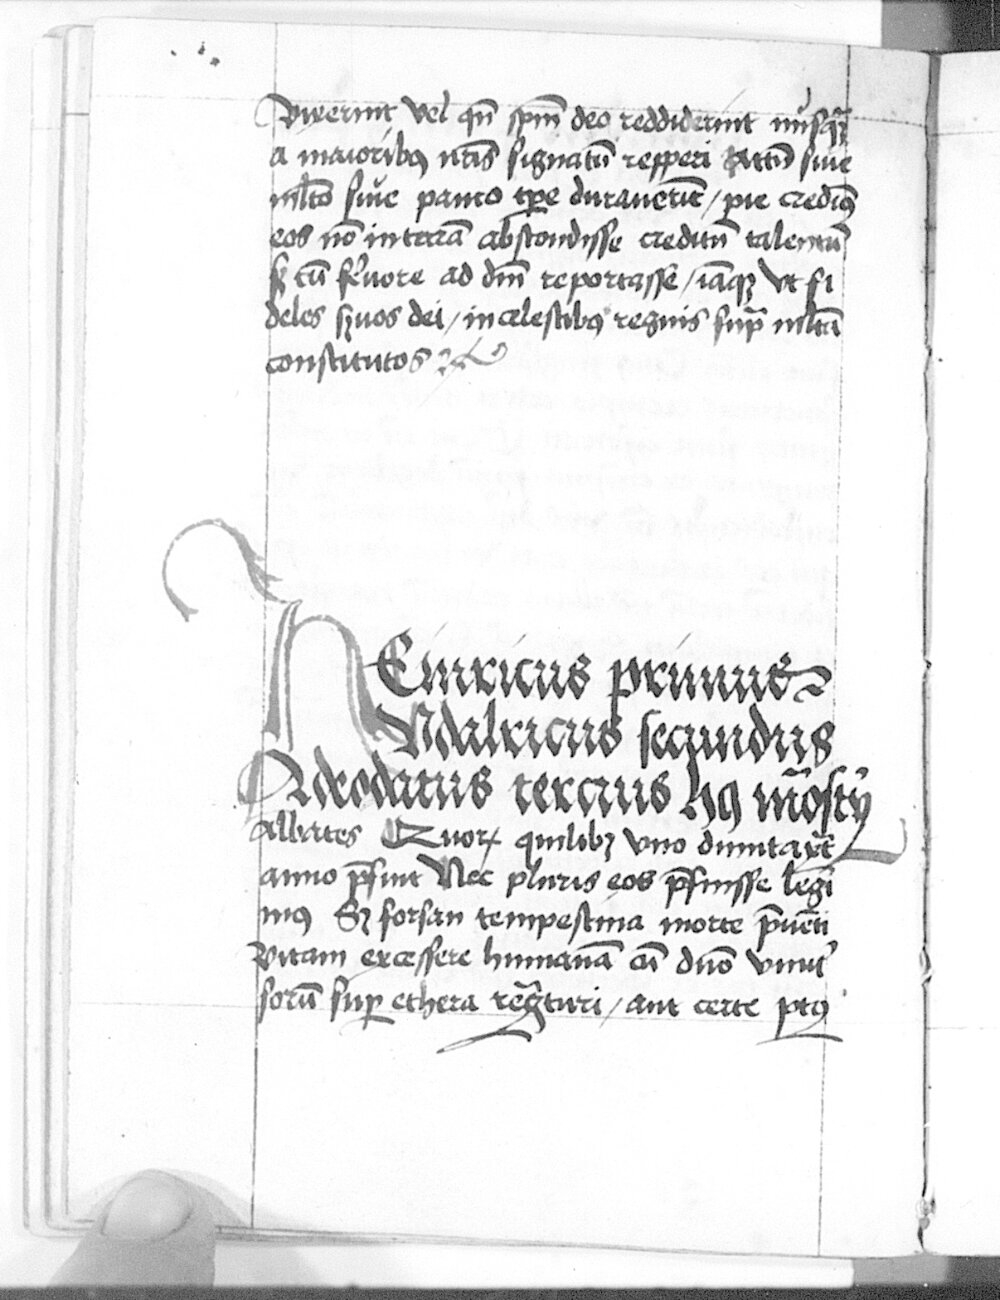 vixerint vel qn̄ spm̄ deo reddiderint nusqꝫ
a maioribꝯ nr̄is signatū repperi Attn̄ siue
ml̄to siue pauco tꝑe durauerīt / pie credimꝯ
eos nō in terrā abscondisse creditū talentū
sꝫ cū feruore ad dn̄m reportasse / iāqꝫ vt fi
deles seruos dei / in celestibꝯ regnis sup̄ ml̄ta
constitutos
HEinricus primus
Vdalricus secundus
Adeodatus tercius hꝯ mōstrij
Abbates Quoꝝ quilibꝫ vno dumtaxat
anno p̄fuit Nec pluris eos p̄fuisse legi
mus Sꝫ forsan tempestiua morte p̄uēti
vitam excessere humanā cū duō vniuer
sorū suꝑ ethera regnaturi / aut certe